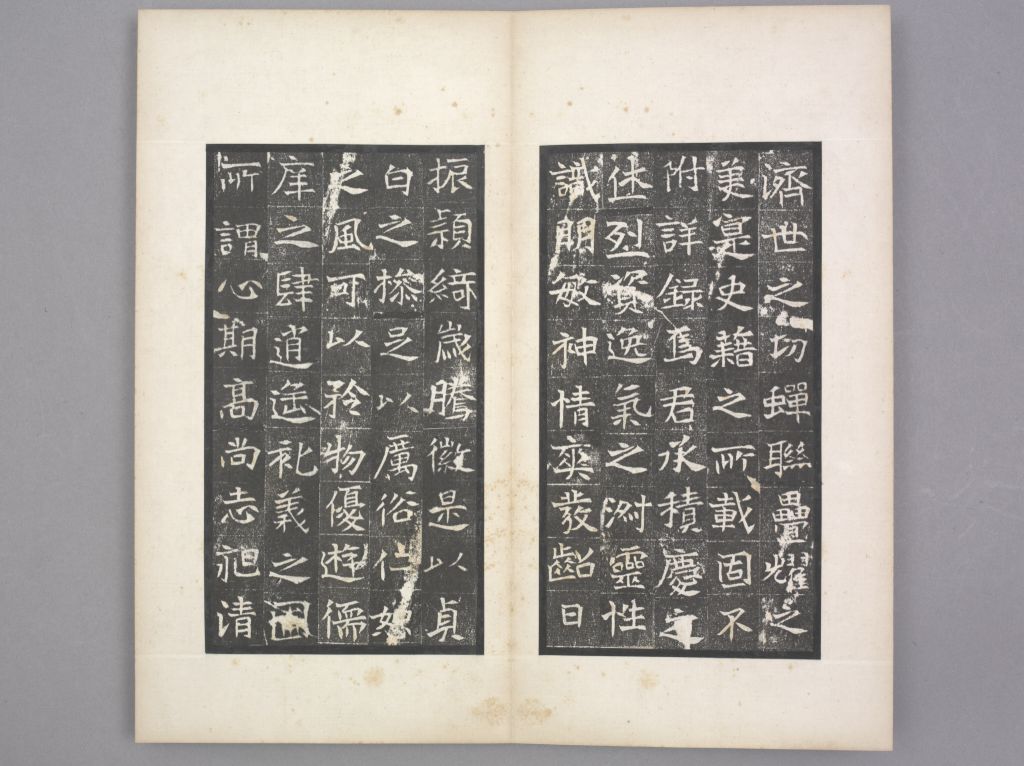 濟世之切蟬聯疊耀之
美寔史籍之所載固不
附詳録焉君承積慶之
休烈資逸氣之淵靈性
識朗敏神情爽發齠日
振穎綺歲騰徽是以貞
白之操足以厲俗仁恕
之風可以矜物優遊儒
庠之肆逍遥礼義之囿
所謂心期高尚志昶清